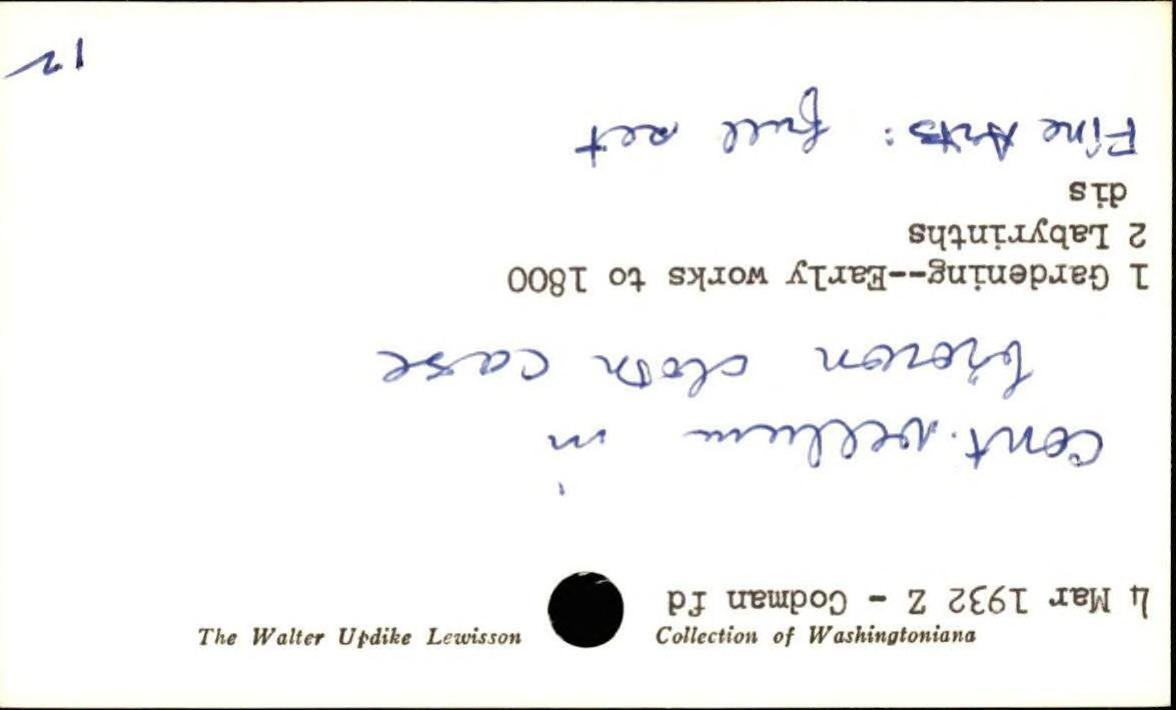 The Walter Updike Lewisson Collection of Washingtoniana
4 Mar 1932 Z - Codman fd
cont. vellum in
brown cloth case
1 Gardening--Early works to 1800
2 Labyrinths
dis
Fine Arts: full set